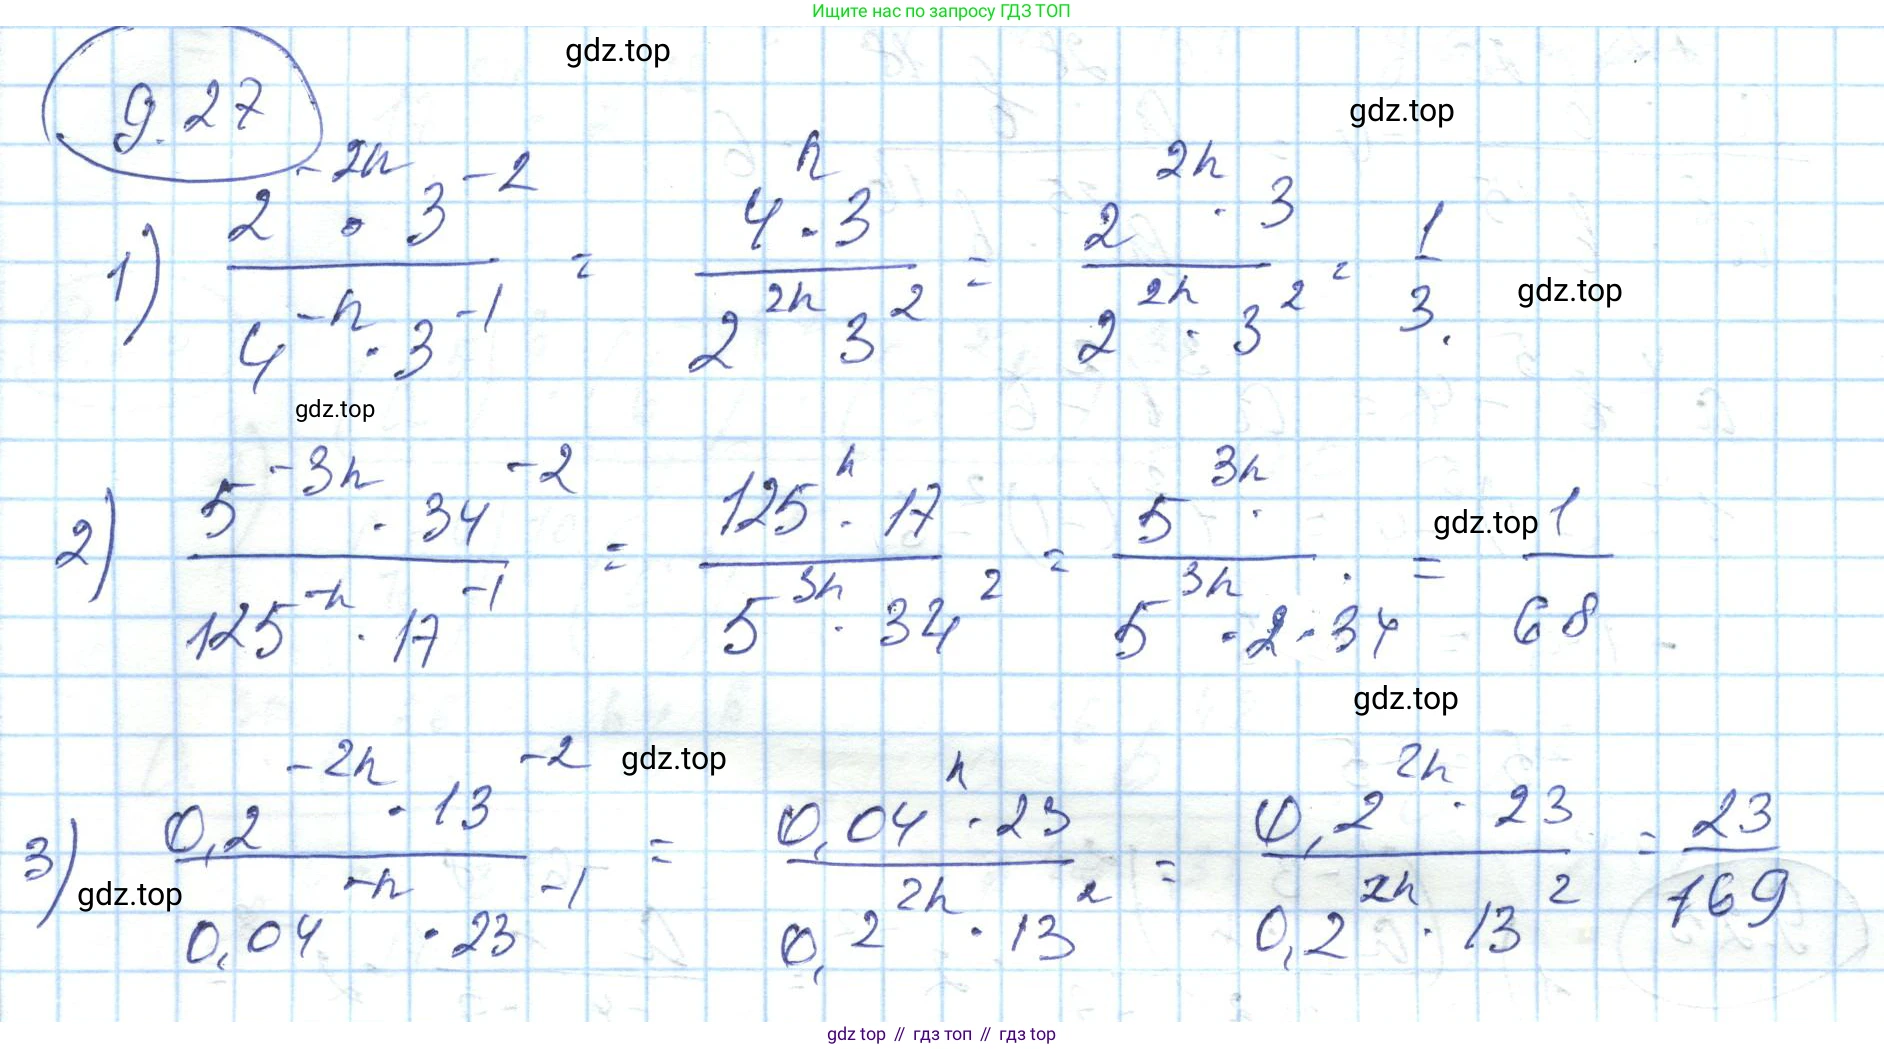 Ищите нас по запросу ГДЗ ТОП
gdz.top
9.27
gdz.top
1) (2^{-2n} · 3^{-2}) / (4^{-n} · 3^{-1}) = (4^n · 3) / (2^{2n} 3^2) = (2^{2n} · 3) / (2^{2n} · 3^2) = 1/3.
gdz.top
gdz.top
2) (5^{-3n} · 34^{-2}) / (125^{-n} · 17^{-1}) = (125^n · 17) / (5^{3n} · 34^2) = (5^{3n} ·) / (5^{3n} · 2 · 34) = 1/68
gdz.top
gdz.top
gdz.top
3) (0,2^{-2n} · 13^{-2}) / (0,04^{-n} · 23^{-1}) = (0,04^n · 23) / (0,2^{2n} · 13^2) = (0,2^{2n} · 23) / (0,2^{2n} · 13^2) = 23/169
gdz.top
gdz top // гдз топ // гдз top